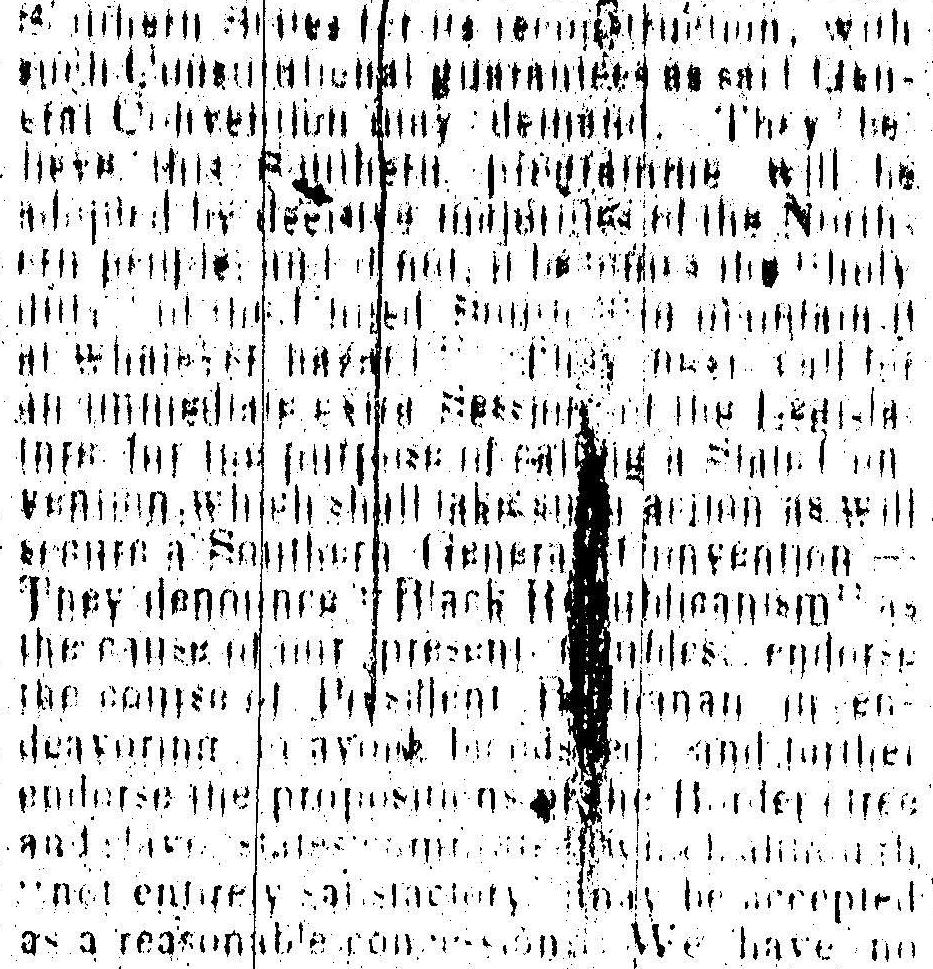 Southern States for its reconstruction, with
such Constitutional guarantees as said Gen-
eral Convention may demand. They be-
lieve this Southern programme will be
adopted by decisive majorities of the North-
ern people; and if not, it becomes the "holy
duty" of the United South "to maintain it
at whatever hazard." They next call for
an immediate extra session of the Legisla-
ture for the purpose of calling a State Con-
vention, which shall take such action as will
secure a Southern General Convention —
They denounce "Black Republicanism" as
the cause of our present troubles, endorse
the course of President Buchanan in en-
deavoring to avoid bloodshed; and further
endorse the propositions of the Border free
and slave States' committee, which, although
"not entirely satisfactory" may be accepted
as a reasonable concession. We have no